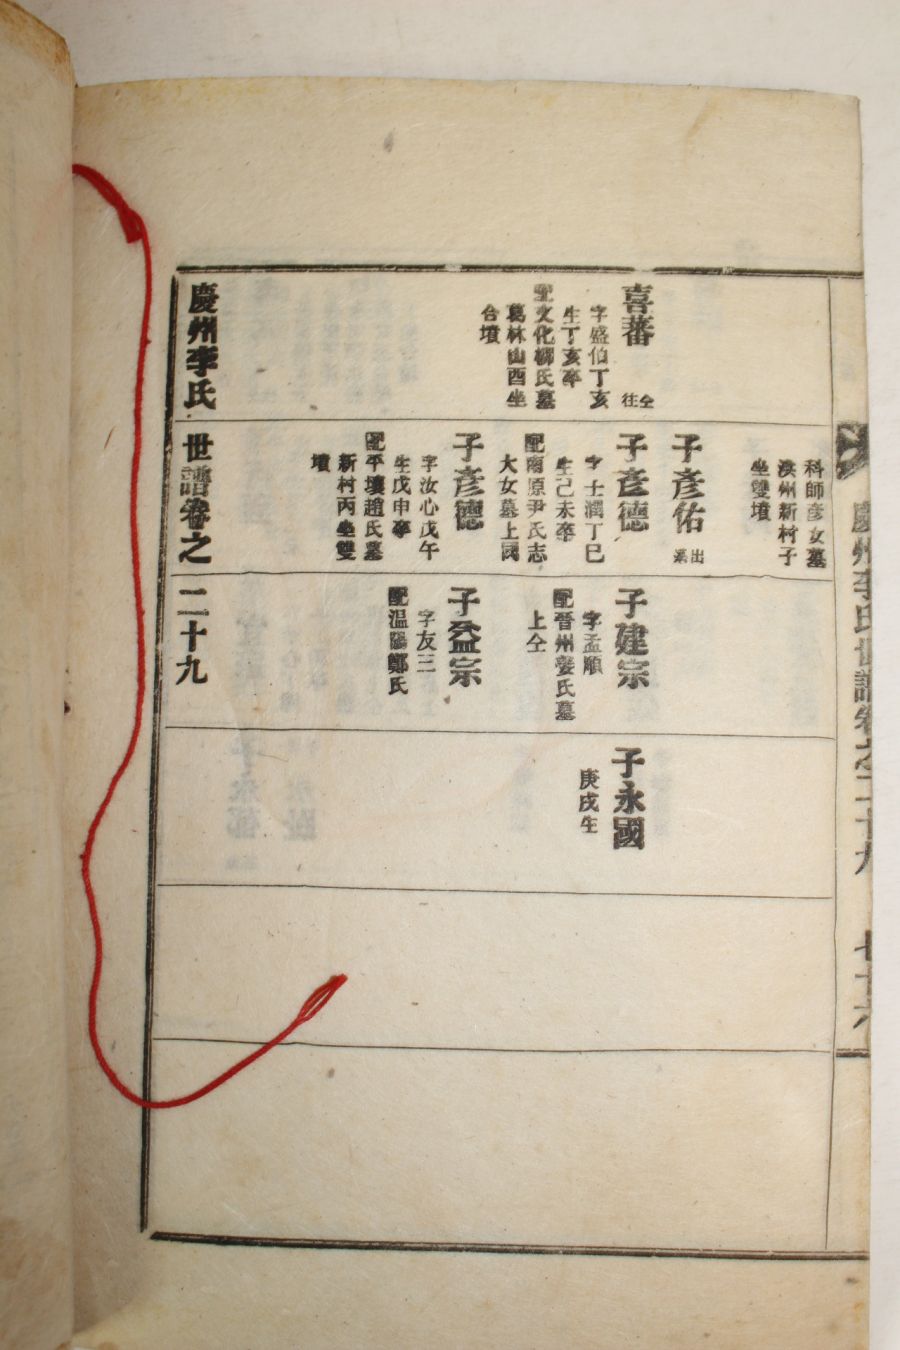 慶州李氏世譜卷之二十九
七十六
喜蕃
仝
往
字盛伯丁亥
生丁亥卒
配文化柳氏墓
葛林山酉坐
合墳
科師彦女墓
洪州新村子
坐雙墳
子彦佑
出
系
子彦德
字士潤丁巳
生己未卒
配南原尹氏志
大女墓上同
子彦德
字汝心戊午
生戊申卒
配平壤趙氏墓
新村丙坐雙
墳
子建宗
字孟順
配晉州姜氏墓
上仝
子益宗
字友三
配溫陽鄭氏
子永國
庚戌生
慶州李氏世譜卷之二十九